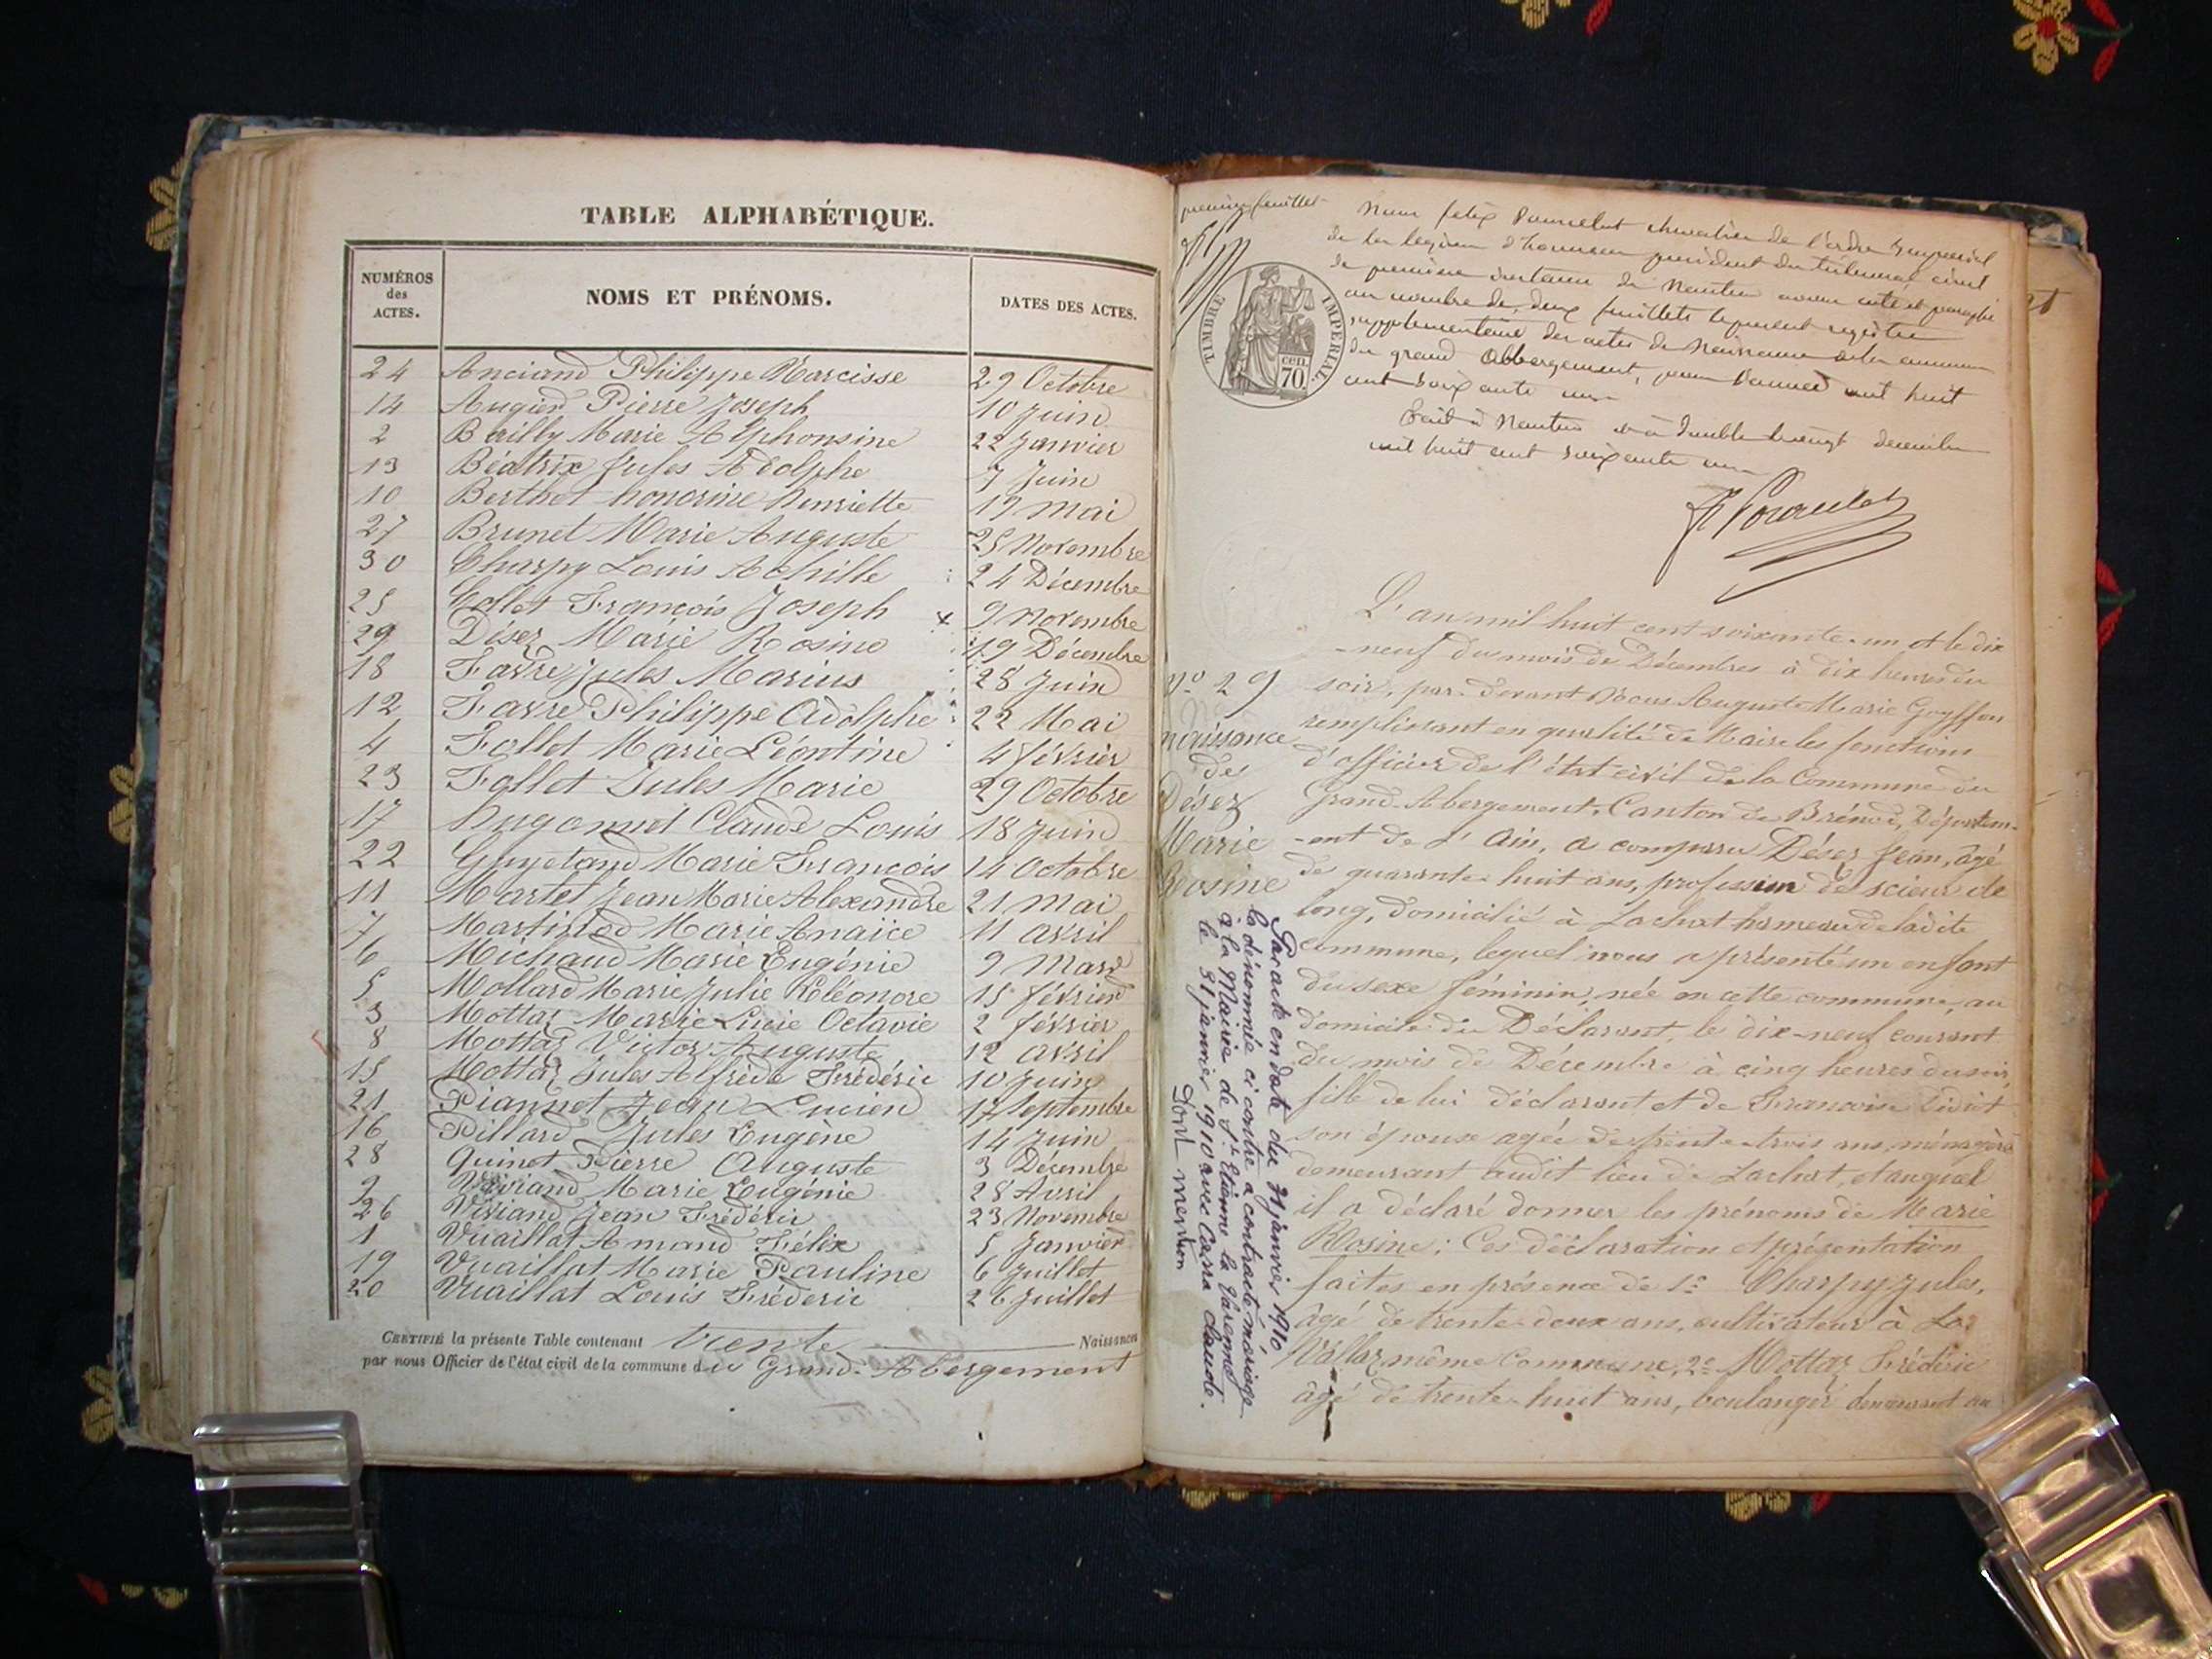 TABLE ALPHABÉTIQUE.
NUMÉROS
des
ACTES.
NOMS ET PRÉNOMS.
DATES DES ACTES.
24 Anciand Philippe Narcisse 29 Octobre
14 Augier Pierre Joseph 10 Juin
2 Bailly Marie Alphonsine 22 Janvier
13 Béatrix Jules Adolphe 7 Juin
10 Berthet honorine henriette 19 mai
27 Brunet Marie Auguste 25 Novembre
30 Charpy Louis Achille 24 Décembre
25 Collet François Joseph x 9 Novembre
29 Désez Marie Rosine 19 Décembre
18 Favre Jules Marius 28 Juin
12 Favre Philippe Adolphe 22 Mai
4 Follet Marie Léontine 4 février
23 Follet Jules Marie 29 Octobre
17 hugonnet Claude Louis 18 Juin
22 Guyetand Marie François 14 Octobre
11 Martet Jean Marie Alexandre 21 mai
7 Martinod Marie Anaïce 11 avril
6 Michaud Marie Eugénie 9 Mars
5 Mollard Marie Julie Eléonore 15 février
3 Mottaz Marie Lucie Octavie 2 février
8 Mottaz Victor Auguste 12 avril
15 Mottaz Jules Alfrède Frédéric 10 Juin
21 Piannet Jean Lucien 17 Septembre
16 Pillard Jules Eugène 14 Juin
28 Quinet Pierre Auguste 3 Décembre
9 Viviand Marie Eugénie 28 Avril
26 Viviand Jean Frédéric 23 Novembre
1 Vuaillat Amand Félix 5 Janvier
19 Vuaillat Marie Pauline 6 Juillet
20 Vuaillat Louis Fréderic 26 Juillet
CERTIFIÉ la présente Table contenant trente Naissances
par nous Officier de l'état civil de la commune du Grand-Abergement
premier feuillet
TIMBRE IMPÉRIAL
cen.
70.
Nous felix chevalier de l'ordre Imperial
de la legion d'honneur president du tribunal civil
de premiere instance de Nantua avons coté et paraphé
au nombre de deux feuillets le present registre
supplementaire des actes de Naissance de la commune
du grand Abbergement, pour l'année mil huit
cent soixante un
fait à Nantua le vingt decembre
mil huit cent soixante un
L'an mil huit cent soixante-un et le dix
-neuf du mois de Décembres à dix heures du
soir, par-devant Nous Auguste Marie
remplissant en qualité de Maire les fonctions
d'officier de l'état civil de la Commune du
Grand-Abergement, Canton de Brénod, Départem-
-ent de l'Ain, a comparu Désez Jean, âgé
de quarante-huit ans, profession de scieur de
long, domicilié à Lachat hameau de ladite
commune, lequel nous a présenté un enfant
du sexe féminin, née en cette commune, au
domicile du Déclarant, le dix-neuf courant
du mois de Décembre à cinq heures du soir,
fille de lui déclarant et de Francoise
son épouse agée de trente-trois ans, ménagère
demeurant audit lieu de Lachat, et auquel
il a déclaré donner les prénoms de Marie
Rosine; Ces déclaration et présentation
faites en présence de 1° Charpy Jules,
âgé de trente-deux ans, cultivateur à La
même Commune, 2° Mottaz Frédéric
âgé de trente-huit ans, boulanger demeurant au
N° 29
naissance
de
Désez
Marie
Rosine
Par acte en date du 31 janvier 1910
la dénommée ci contre a contracté mariage
à la Mairie de St Etienne la Varenne
le 31 janvier 1910 avec Carra Claude.
Dont mention